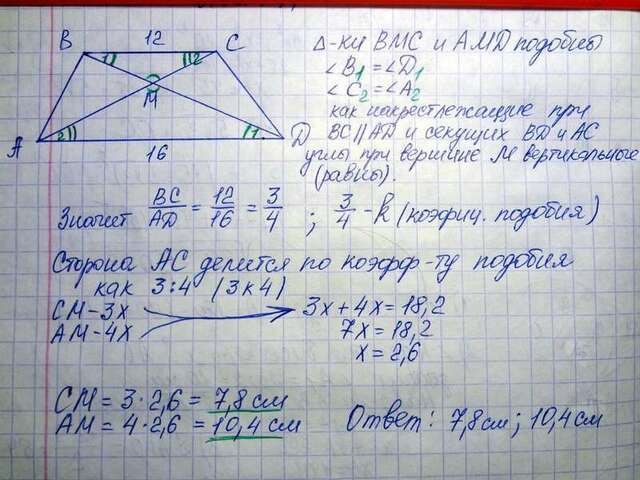 B 12 C
1 2
M
A 2 1 D
16
Δ-ки BMC и AMD подобны
∠B1 = ∠D1
∠C2 = ∠A2
как накрестлежащие при
BC||AD и секущих BD и AC
углы при вершине M вертикальные
(равны).
Значит BC/AD = 12/16 = 3/4 ; 3/4 - k (коэфиц. подобия)
Сторона AC делится по коэфф-ту подобия
как 3:4 (3 к 4)
CM - 3x 3x + 4x = 18,2
AM - 4x 7x = 18,2
x = 2,6
CM = 3·2,6 = 7,8 см
AM = 4·2,6 = 10,4 см Ответ: 7,8 см; 10,4 см